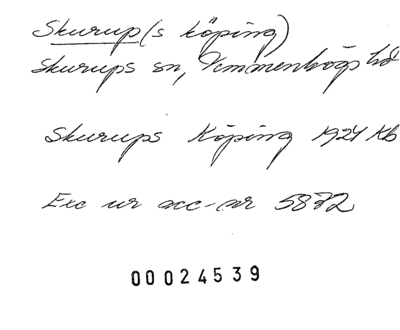 Skurup(s köping)
Skurups sn, Vemmenhögs hd
Skurups Köping 1921 Kb
Exc ur acc-nr 5872
00024539